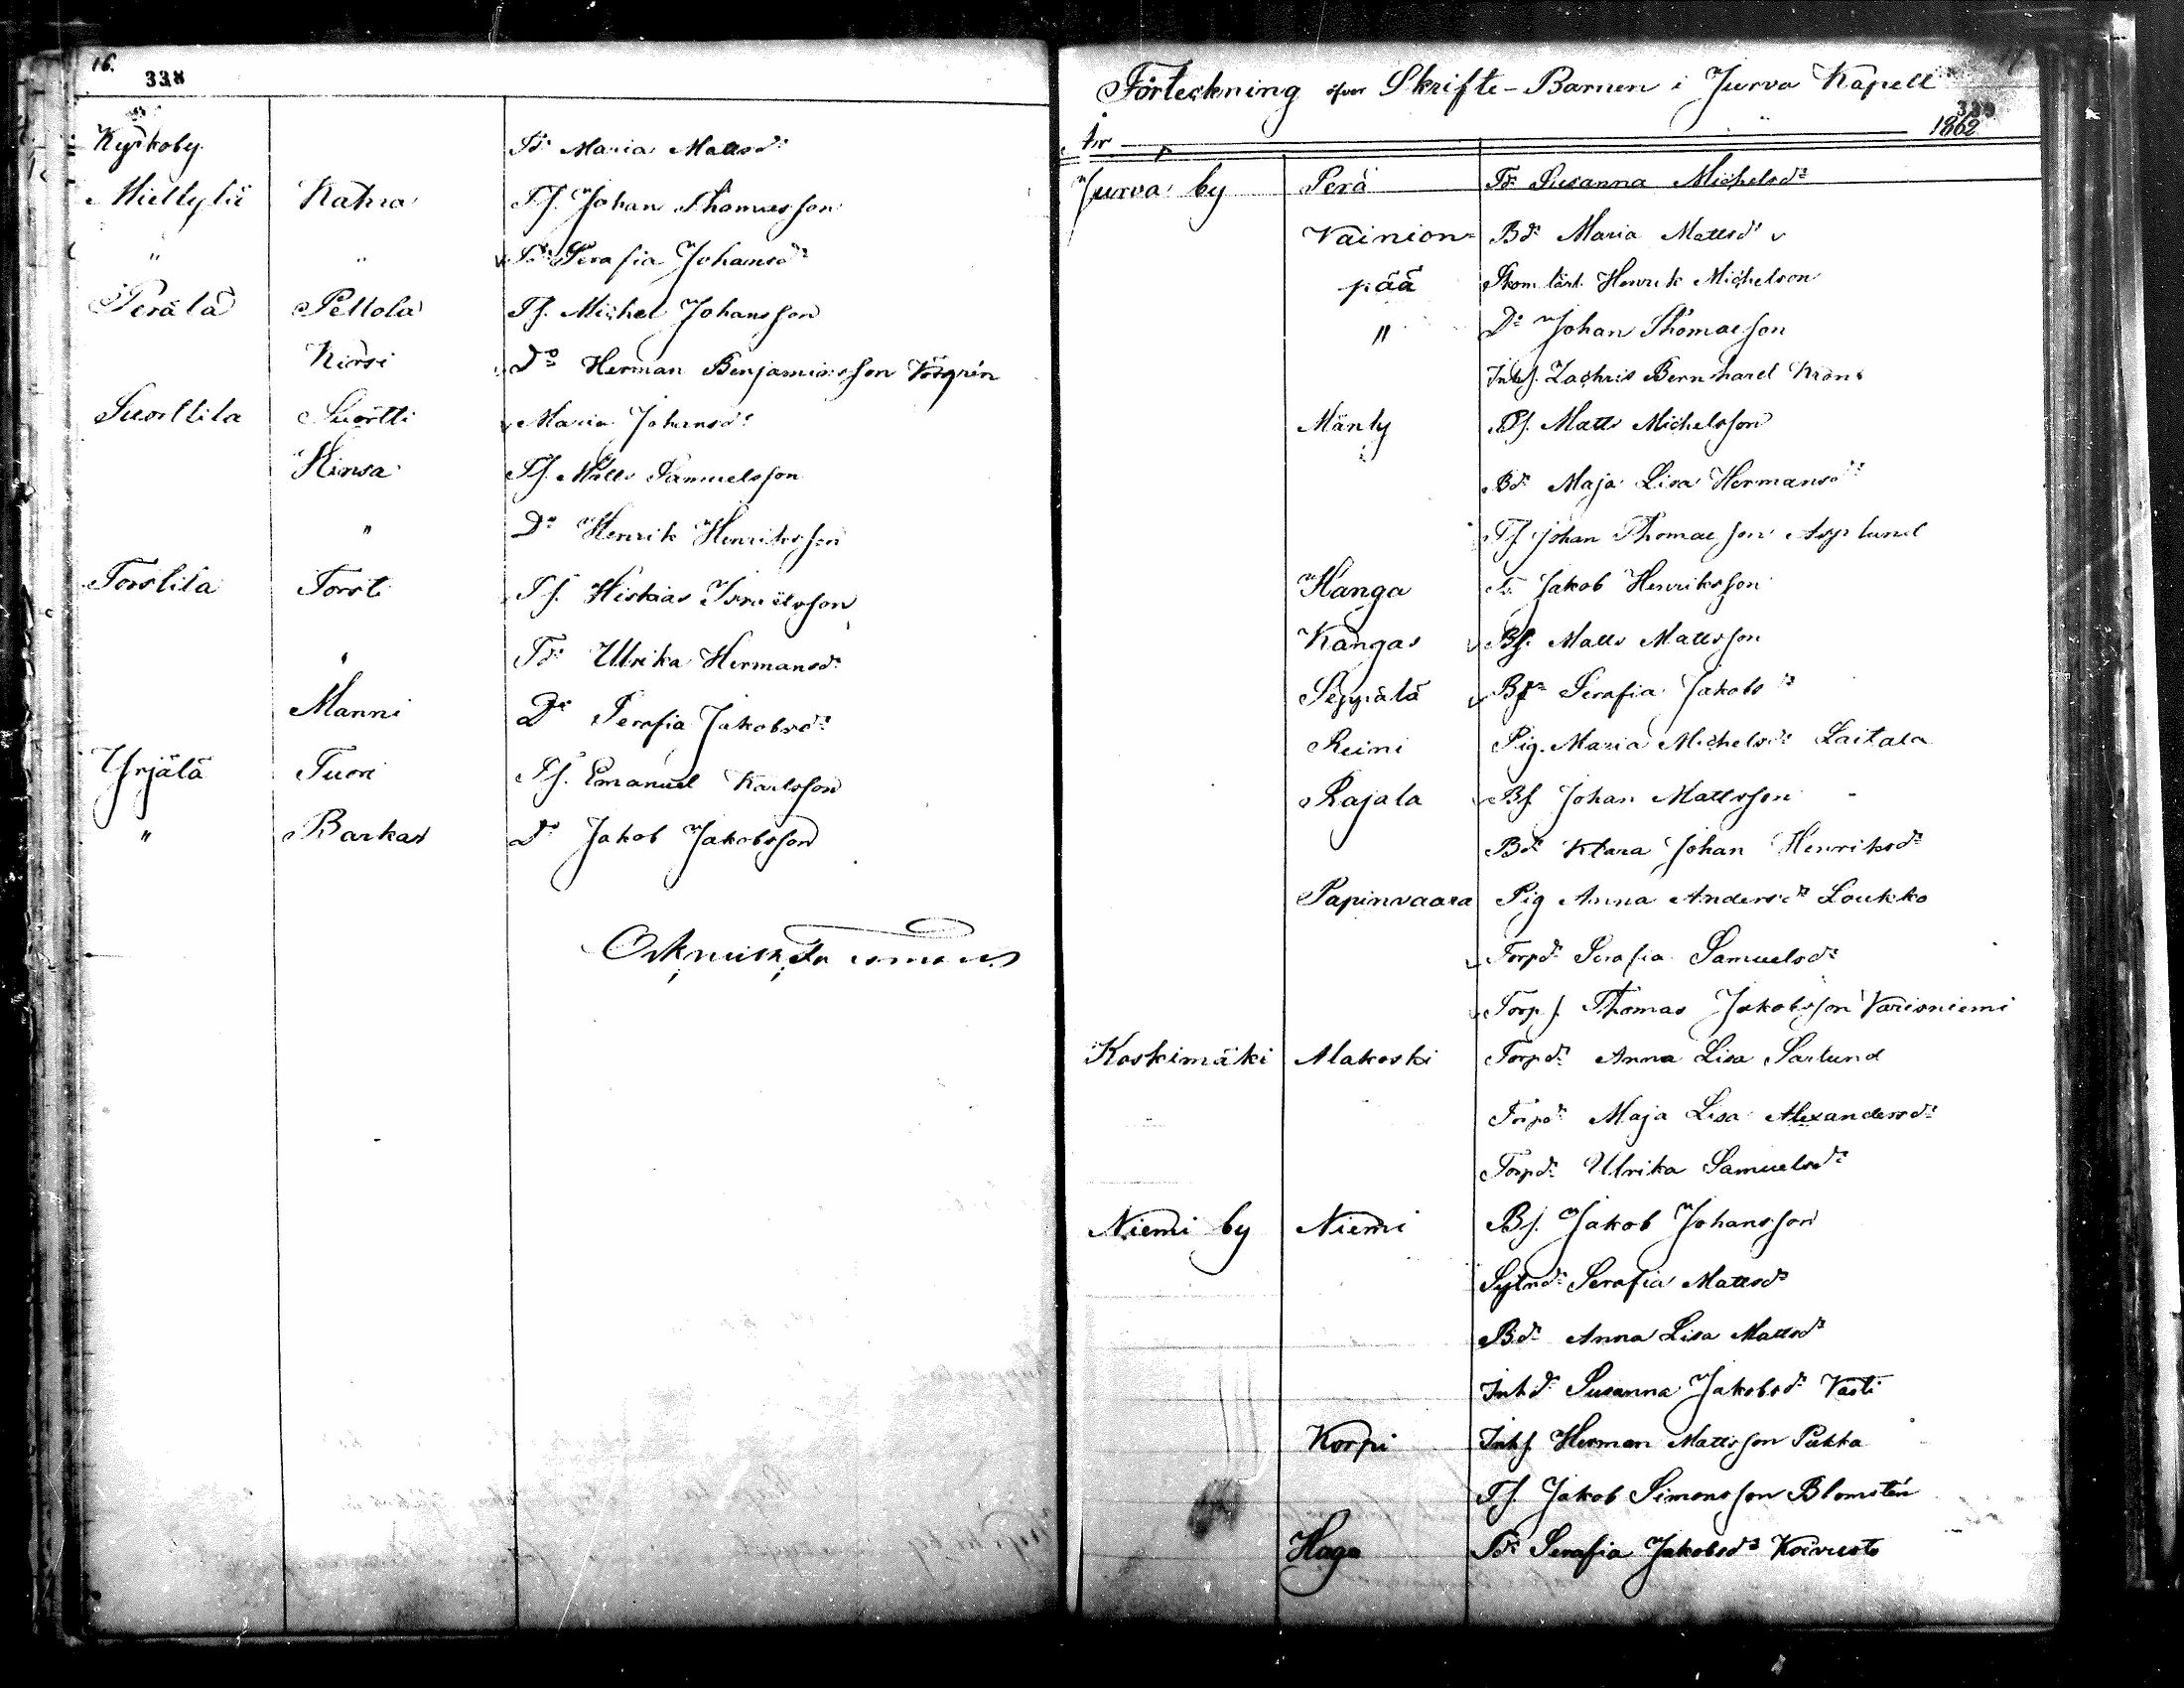 16.
338
Kyrkoby Td: Maria Mattsd:
Miettylä Katra Tf. Johan Thomasson
" " Td: Serafia Johansd:
Perälä Peltola Tf. Michel Johansson
Kirsi Do Herman Benjaminsson
Suortlila Suortti Maria Johansd:
Hinsa Tf. Matts Samuelsson
" Do Henrik Henriksson
Torstila Torsti Tf. Hiskias Israelsson
" Td: Ulrika Hermansd:
Manni Do Serafia Jakobsd:
Yrjälä Tuori Tf. Emanuel Karlsson
" Barkar Do Jakob Jakobsson
Förteckning öfver Skrifte-Barnen i Jurva Kapell
339
År 1862
Jurva by Perä Td: Susanna Michelsd:
Vainion= Bd: Maria Mattsd:
pää Skom lärl. Henrik Michelson
" Do Johan Thomasson
Inhs. Zachris Bernhard
Mänty Bf. Matts Michelsson
Bd: Maja Lisa Hermansd:
Tf. Johan Thomasson Asplund
Hanga Ts. Jakob Henriksson
Kangas Bf. Matts Mattsson
Seppälä Bd: Serafia Jakobsd:
Reini Pig. Maria Michelsd: Laitala
Rajala Bf. Johan Mattsson
Bd: Klara Johan Henriksd:
Papinvaara Pig Anna Andersd: Loukko
Torpd: Serafia Samuelsd:
Torp f. Thomas Jakobsson Varisniemi
Koskimäki Alakoski Torpd: Anna Lisa Sarlund
Torpd: Maja Lisa Alexandersd:
Torpd: Ulrika Samuelsd:
Niemi by Niemi Bf. Jakob Johansson
Sytnd: Serafia Mattsd:
Bd: Anna Lisa Mattsd:
Inhd: Susanna Jakobsd: Vasti
Korpi Inhf. Herman Mattsson Pukka
Tf. Jakob Simonsson Blomstén
Haga Td: Serafia Jakobsd: Koivisto